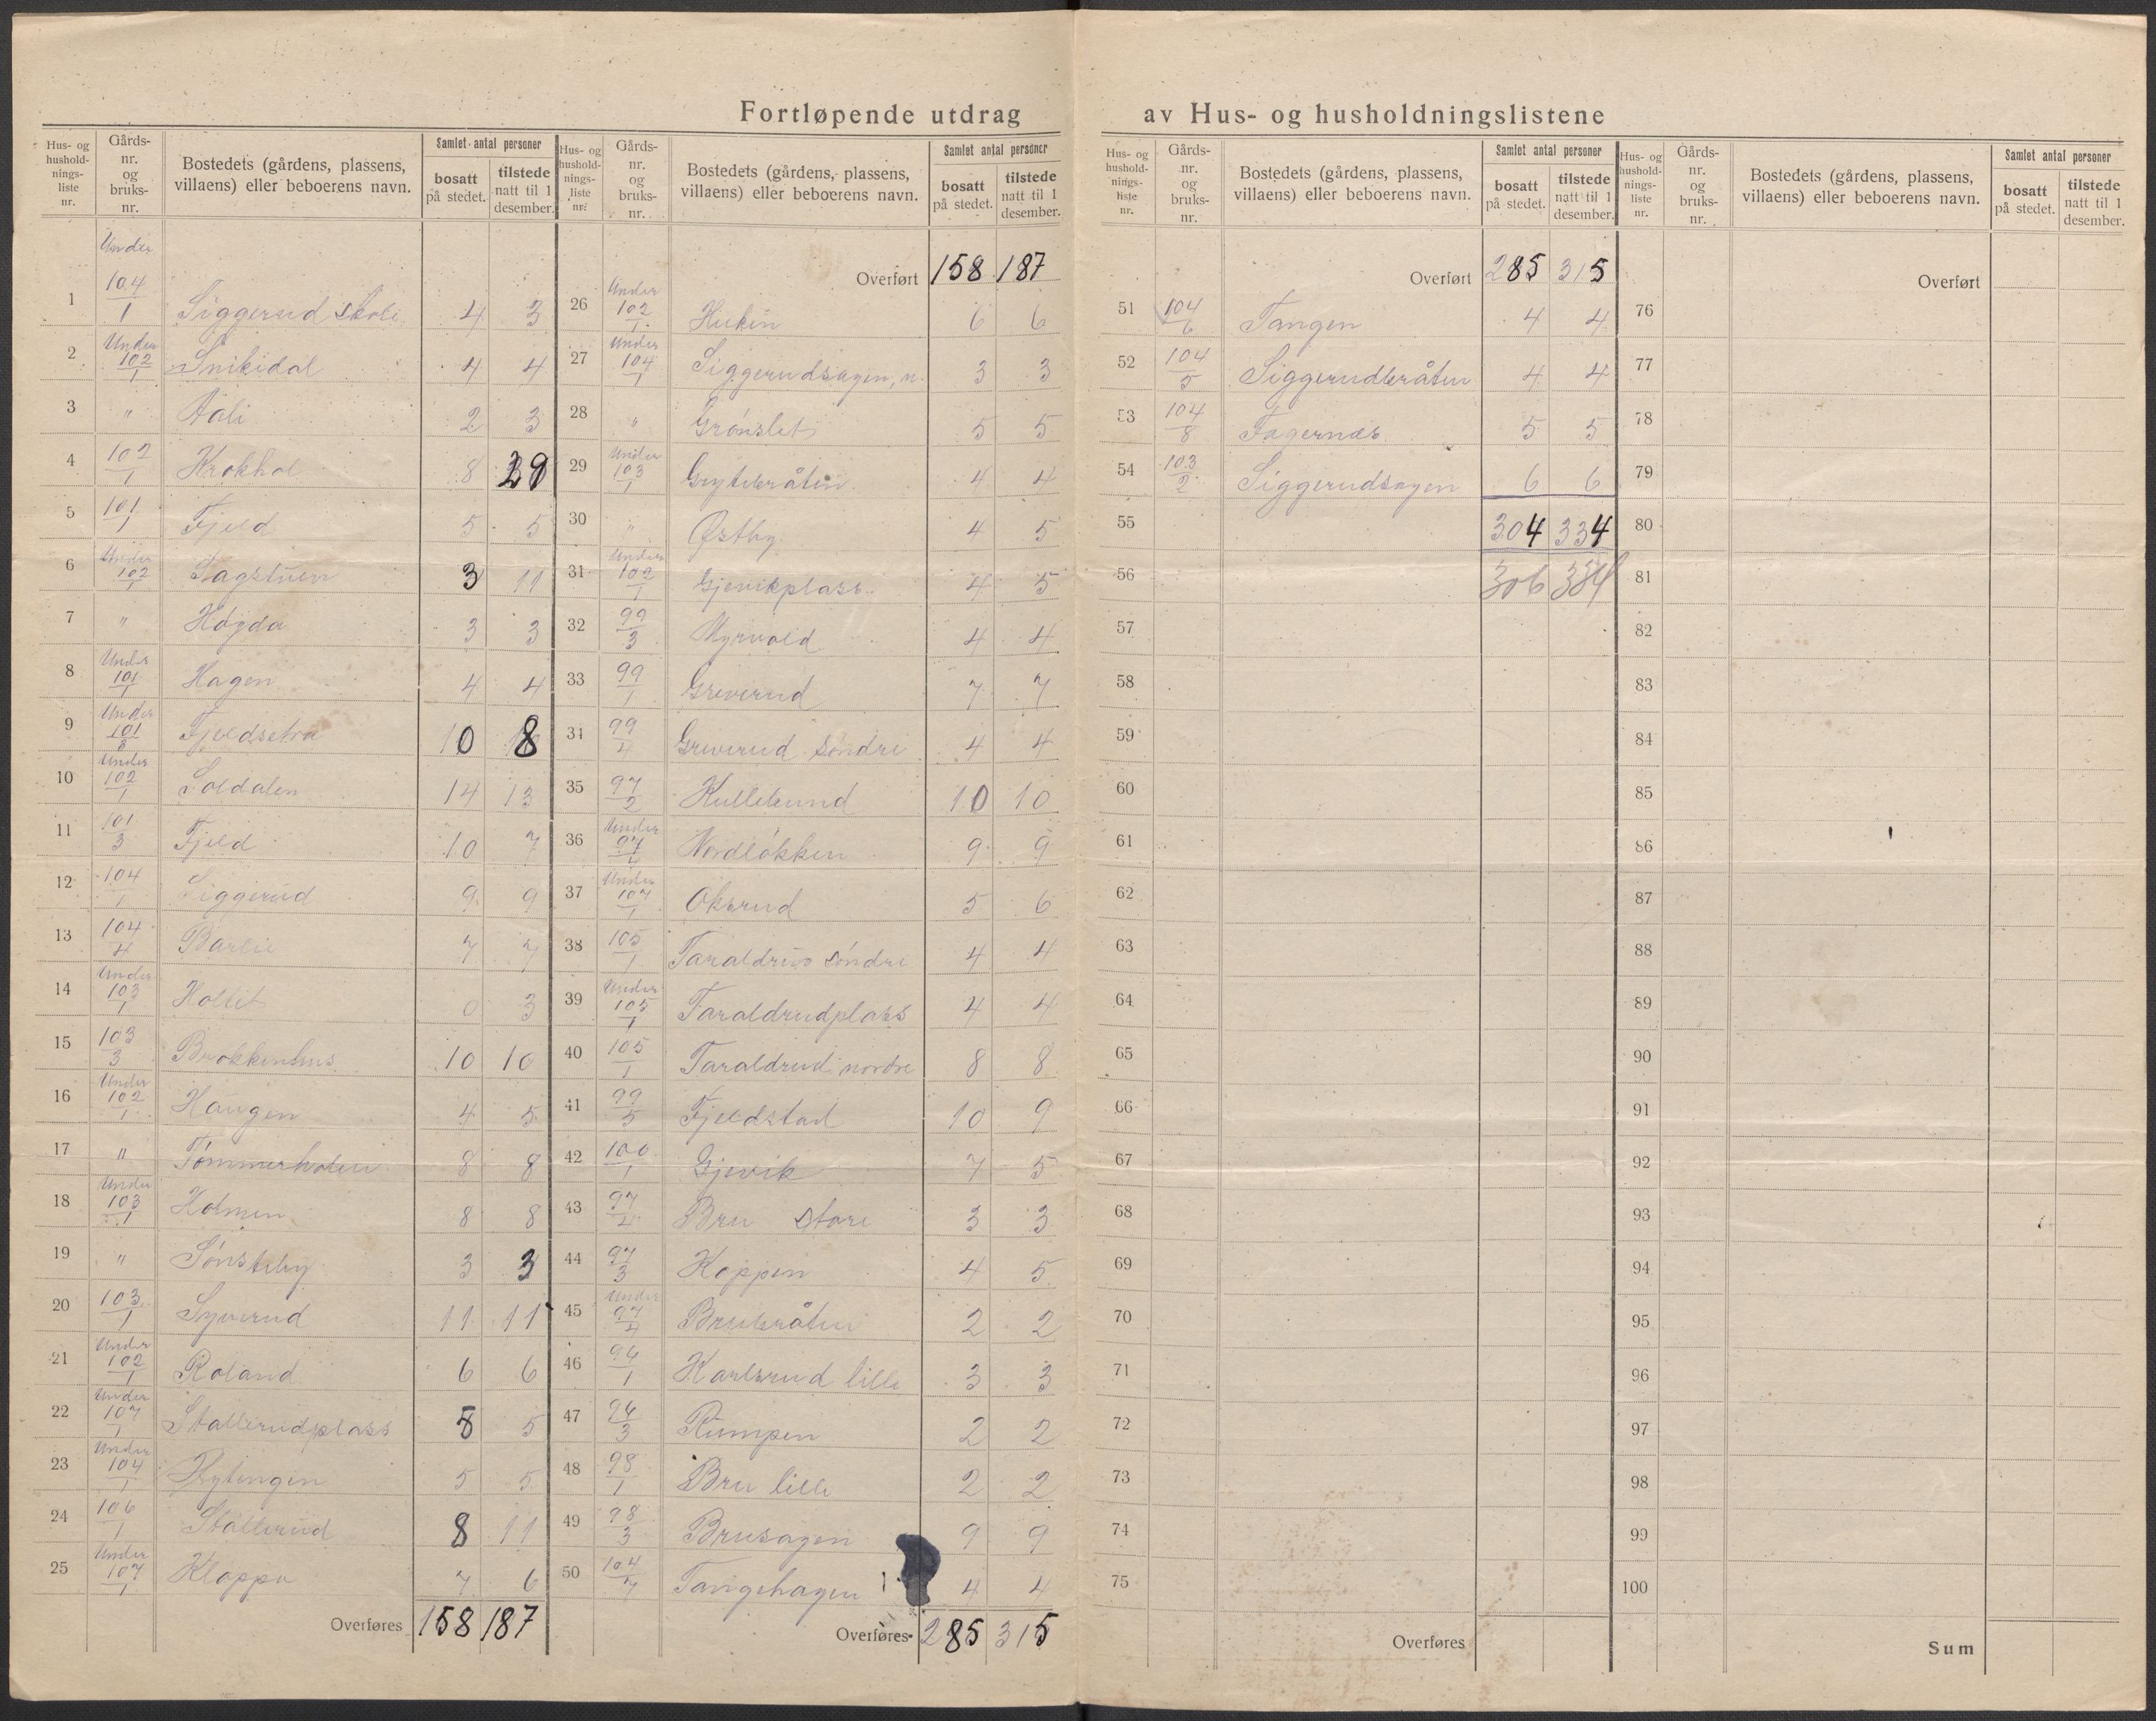 Fortløpende utdrag av Hus- og husholdningslistene
Hus- og hushold-nings-liste nr. Gårds-nr. og bruks-nr. Bostedets (gårdens, plassens, villaens) eller beboerens navn. Samlet antal personer bosatt på stedet. tilstede natt til 1 desember.
1 Under 104/1 Siggerud skole 4 3
2 Under 102/1 4 4
3 " Aali 2 3
4 102/1 Krokhol 8 29
5 101/1 Fjeld 5 5
6 Under 102 Sagstuen 3 11
7 " Høgda 3 3
8 Under 101/1 Hagen 4 4
9 Under 101 Fjeldsetra 10 8
10 Under 102/1 Soldalen 14 13
11 101/3 Fjeld 10 7
12 104/1 Siggerud 9 9
13 104/4 Barlie 7 7
14 Under 103/1 Holtet 0 3
15 103/3 Brokkenhus 10 10
16 Under 102/1 Haugen 4 5
17 " Tømmerholen 8 8
18 Under 103/1 Holmen 8 8
19 " Sønsteby 3 3
20 103/1 Syverud 11 11
21 Under 102/1 Roland 6 6
22 Under 107/1 Stallerudplass 5
23 Under 104/1 Rytingen 5 5
24 106/1 Stallerud 8 11
25 Under 107/1 Kloppa 7 6
Overføres 158 187
Hus- og hushold-nings-liste nr. Gårds-nr. og bruks-nr. Bostedets (gårdens, plassens, villaens) eller beboerens navn. Samlet antal personer bosatt på stedet. tilstede natt til 1 desember.
Overført 158 187
26 Under 102/1 6 6
27 Under 104/1 Siggerudsagen, n. 3 3
28 " Grønslet 5 5
29 Under 103/1 Grytebråten 4 4
30 " Østby 4 5
31 Under 102/1 Gjevikplass 4 5
32 99/3 Myrvold 4 4
33 99/1 Greverud 7 7
34 99/4 Greverud søndre 4 4
35 97/2 Kullebund 10 10
36 Under 97 Nordløkken 9 9
37 Under 107/1 Oksrud 5 6
38 105/1 Taraldrud søndre 4 4
39 Under 105/1 Taraldrudplass 4 4
40 105/1 Taraldrud nordre 8 8
41 99/5 Fjeldstad 10 9
42 100/1 Gjevik 7 5
43 97/4 Bru store 3 3
44 97/3 Koppen 4 5
45 Under 97/4 Brubråten 2 2
46 94/1 Karlsrud lille 3 3
47 94/3 Rumpen 2 2
48 98/1 Bru lille 2 2
49 98/3 Brusagen 9 9
50 104/7 Tangehagen 4 4
Overføres 285 315
Hus- og hushold-nings-liste nr. Gårds-nr. og bruks-nr. Bostedets (gårdens, plassens, villaens) eller beboerens navn. Samlet antal personer bosatt på stedet. tilstede natt til 1 desember.
Overført 285 315
51 104/6 Tangen 4 4
52 104/5 Siggerudbråten 4 4
53 104/8 Fagernes 5 5
54 103/2 Siggerudsagen 6 6
55 304 334
56 306
57
58
59
60
61
62
63
64
65
66
67
68
69
70
71
72
73
74
75
Overføres
Hus- og hushold-nings-liste nr. Gårds-nr. og bruks-nr. Bostedets (gårdens, plassens, villaens) eller beboerens navn. Samlet antal personer bosatt på stedet. tilstede natt til 1 desember.
Overført
76
77
78
79
80
81
82
83
84
85
86
87
88
89
90
91
92
93
94
95
96
97
98
99
100
Sum